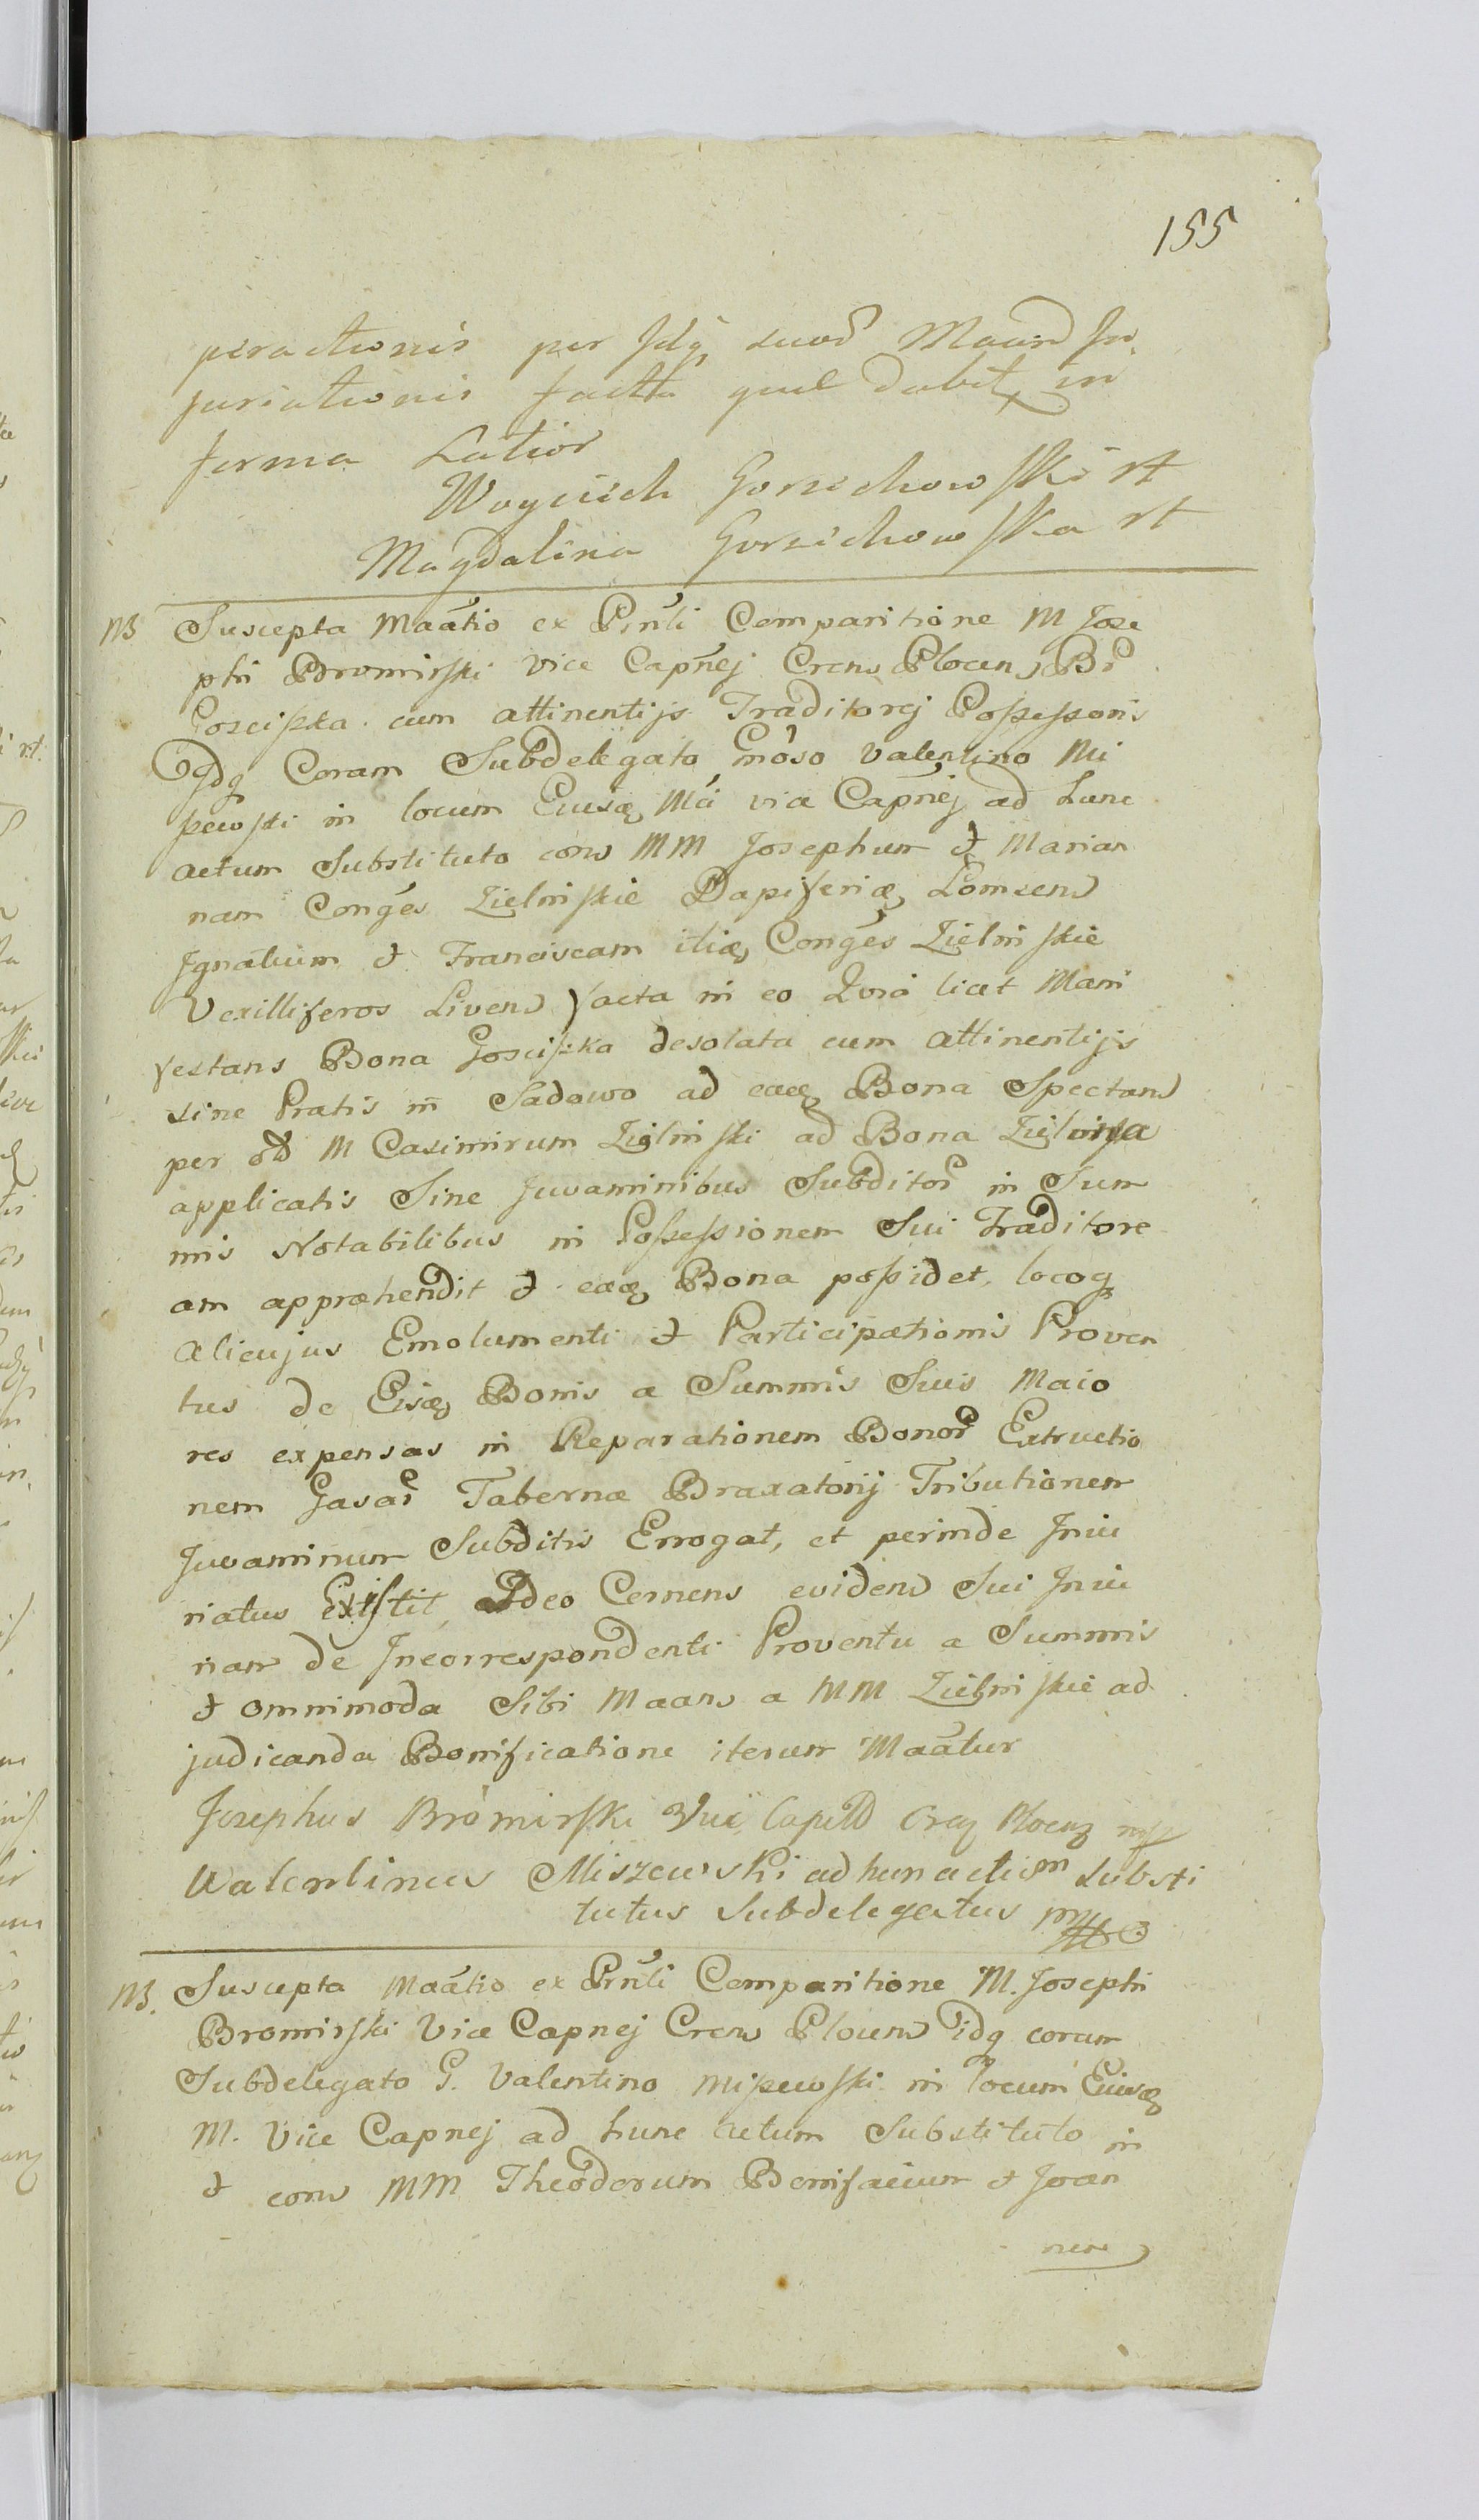 155
peractionis per Jdq suos Maand In
juriationis facta quae dabit in
forma Latior
Woyciech Gorzechowski rt
Magdalena Gorzechowska rt
NB Suscepta Maãtio ex Prñli Comparitione M Jose
phi Bromirski Vice Capñej Crens Plocen Br
Gosciszka cum attinentijs Traditorej Possessoris
Idq Coram Subdelegato Gnoso Valentino Mi
szewski in locum Eiusq Mci vice Capñej ad hunc
actum Substituto cons MM Josephum et Marian
nam Conges Zielinskie Dapiferiæ Lomzens
Ignatium et Franciscam itiq Conges Zielinskie
Vexilliferos Livens facta in eo Quia licet Mani
festans Bona Gosciszka desolata cum attinentijs
sine Pratis in Sadowo ad eaq Bona Spectans
per M Casimirum Zielinski ad Bona Zielona
applicatis Sine Juvaminibus Subditor in Sum
mis Notabilibus in Possessionem Sui Traditore
am appræhendit et eaq Bona possidet, locoq
alicujus Emolumenti et Participationis Proven
tus de Eisq Bonis a Summis Suis Maio
res expensas in Reparationem Bonor Extructio
nem Gasar Tabernæ Braxatorij Tributionem
Juvaminum Subditis Errogat, et perinde Iniu
riatus Existit, Adeo Cernens evidens Sui Iniu
riam de Incorrespondenti Proventu a Summis
et omnimoda Sibi Maans a MM Zielinskie ad
judicanda Bonificatione iterum Maãtur
Josephus Bromirski Vice Capit Craq Plocenq mp
Walentinus Miszewski ad hun actum Substi
tutus Subdelegatus mp
NB. Suscepta Maãtio ex Prñli Comparitione M. Josephi
Bromirski Vice Capnej Crens Plocens idq coram
Subdelegato G. Valentino Miszewski in locum Eiusq
M. Vice Capnej ad hunc actum Substituto in
et cons MM Theodorum Bonifacium et Joan
nem